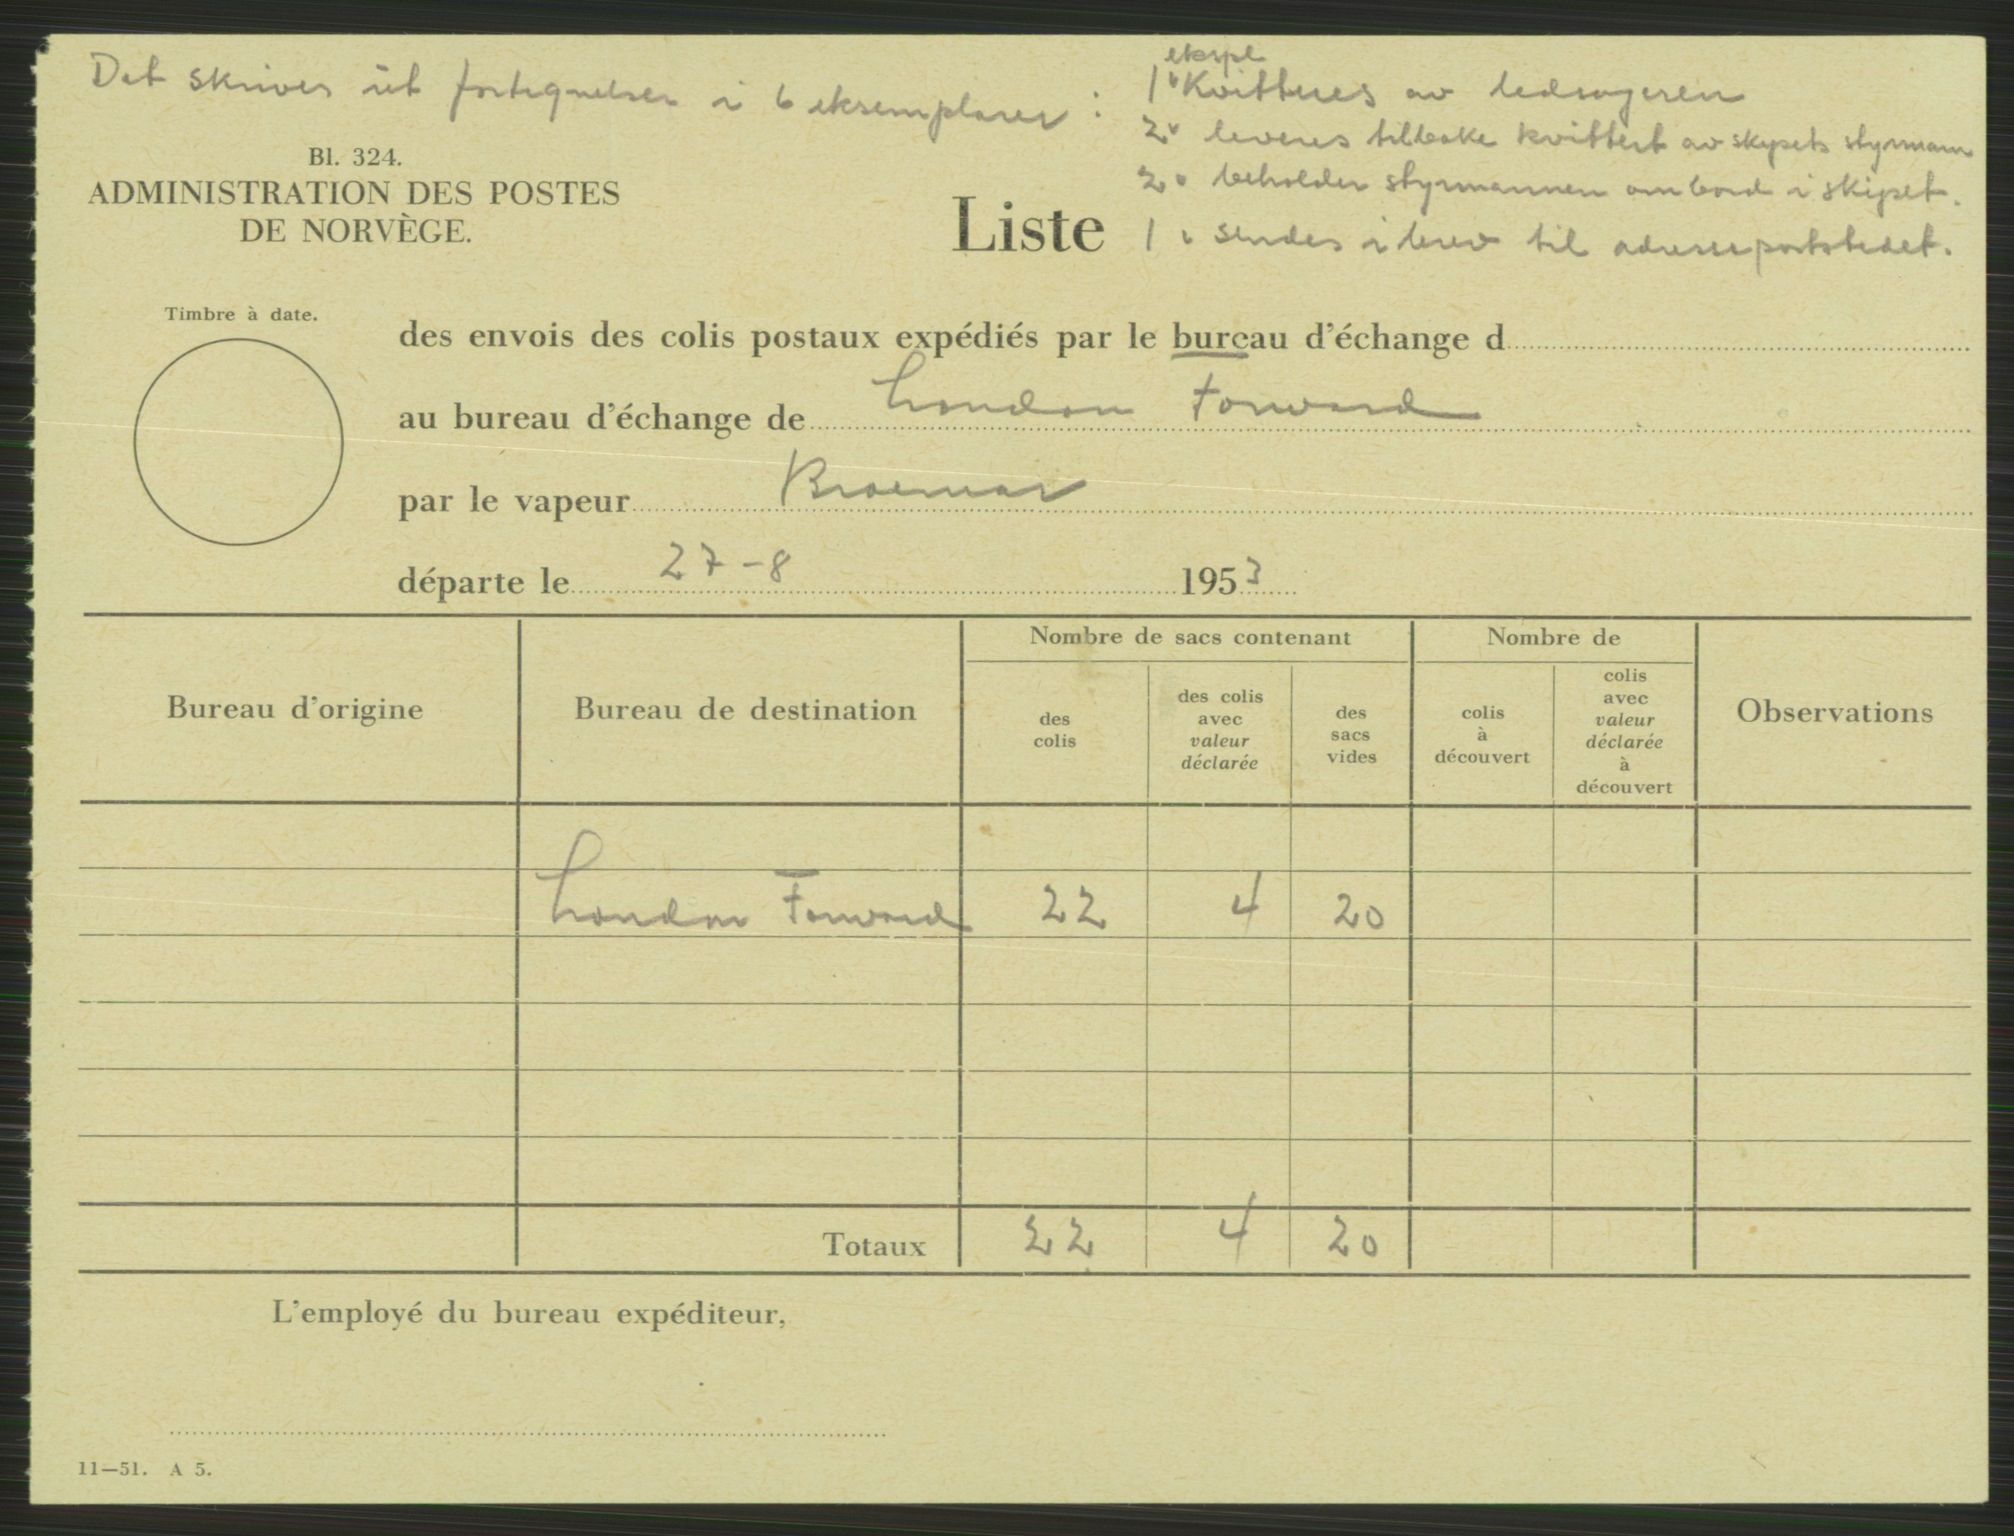 Det skrives ut fortegnelser i 6 eksemplarer :
ekspl
1 " Kvitteres av ledsageren
2 " leveres tilbake kvittert av skipets styrmann
2 " beholder styrmannen ombord i skipet.
1 " sendes i brev til adressepoststedet.
Bl. 324.
ADMINISTRATION DES POSTES
DE NORVÈGE.
Liste
Timbre à date.
des envois des colis postaux expédiés par le bureau d'échange d
au bureau d'échange de London Forward
par le vapeur Braemar
départe le 27-8 1953
Nombre de sacs contenant
Nombre de
Bureau d'origine
Bureau de destination
des
colis
des colis
avec
valeur
déclarée
des
sacs
vides
colis
à
découvert
colis
avec
valeur
déclarée
à
découvert
Observations
London Forward 22 4 20
Totaux 22 4 20
L'employé du bureau expéditeur,
11—51. A 5.